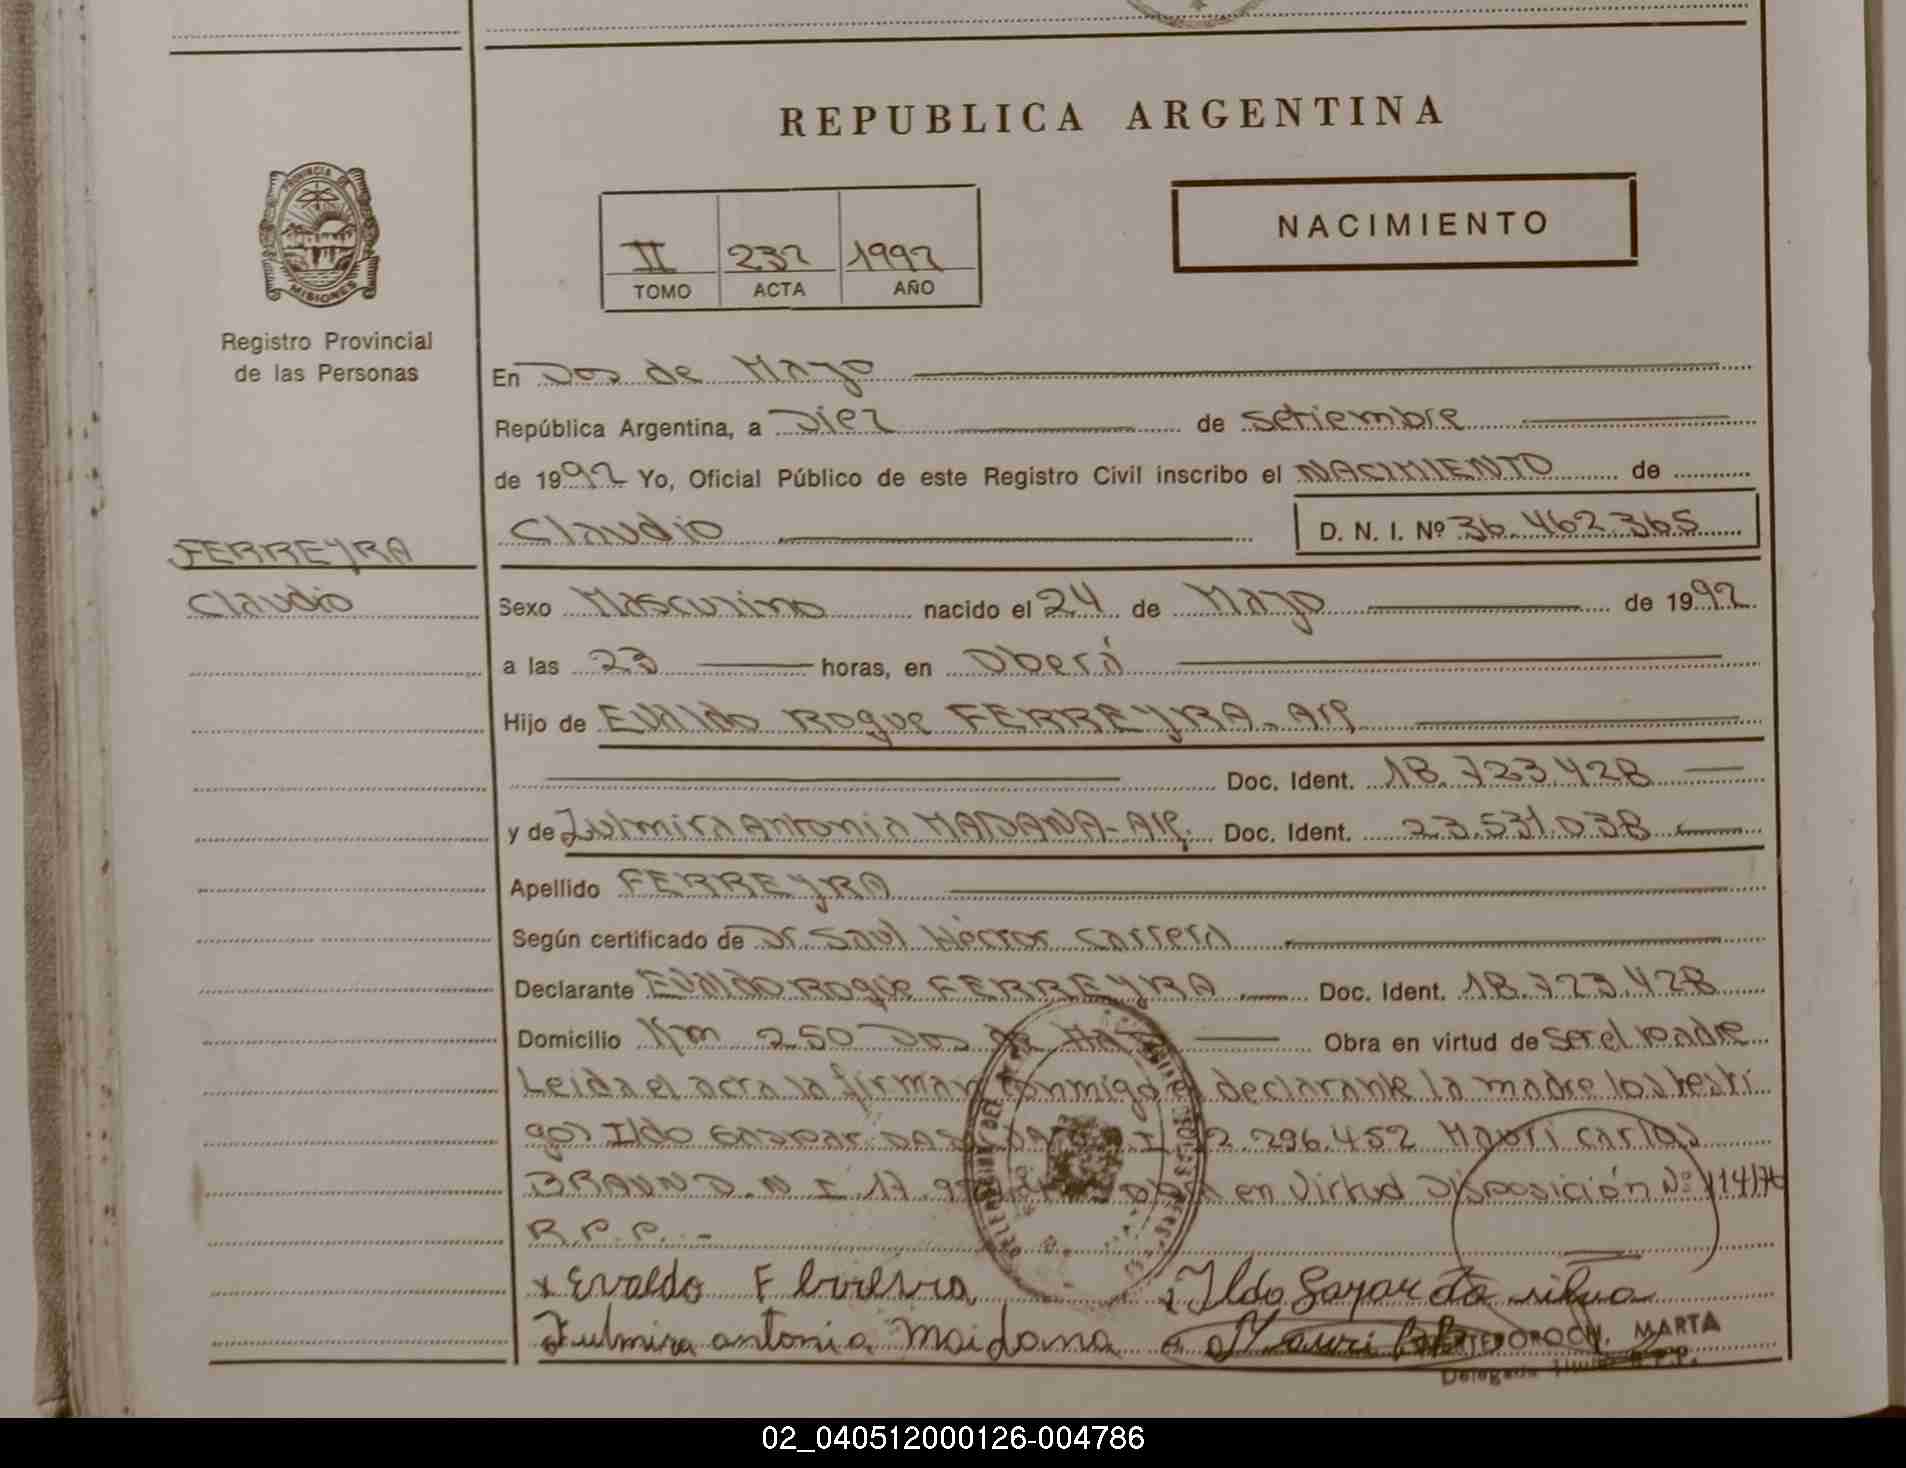 REPUBLICA ARGENTINA
PROVINCIA DE
MISIONES
Registro Provincial
de las Personas
II 232 1992
TOMO ACTA AÑO
NACIMIENTO
En Dos de Mayo
República Argentina, a Diez de setiembre
de 1992 Yo, Oficial Público de este Registro Civil inscribo el NACIMIENTO de
Claudio D. N. I. Nº 36.462.365
FERREYRA
Claudio
Sexo Masculino nacido el 24 de Mayo de 1992
a las 23 horas, en Oberá
Hijo de Evaldo Roque FERREYRA - Arg
Doc. Ident. 18.723.428
y de Zulmira Antonia MADANA - Arg. Doc. Ident. 23.531.038
Apellido FERREYRA
Según certificado de Dr. Saul Héctor Carrera
Declarante Evaldo Roque FERREYRA Doc. Ident. 18.723.428
Domicilio Km 250 Dos de Mayo Obra en virtud de ser el padre
Leida el acta la firman conmigo el declarante la madre los testi
gos Ildo Gaspar 296.452 Mauri Carlos
BRAUN D.N.I 17. en virtud Disposición Nº 114/76
R.P.P. -
x Evaldo F
Ildo da silva
Zulmira antonia Maidana
Mauri
MARTA
Delegada R.P.P.
02_040512000126-004786